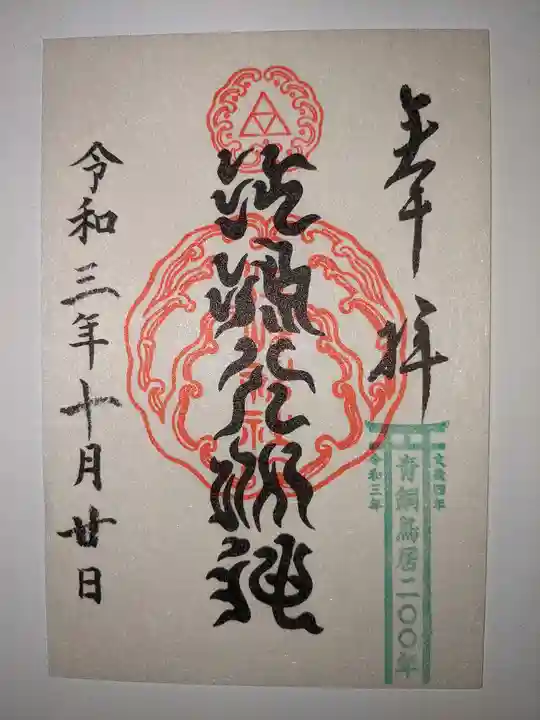 奉拝
江嶋大明神
令和三年十月廿日
文政四年
青銅鳥居二〇〇年
令和三年